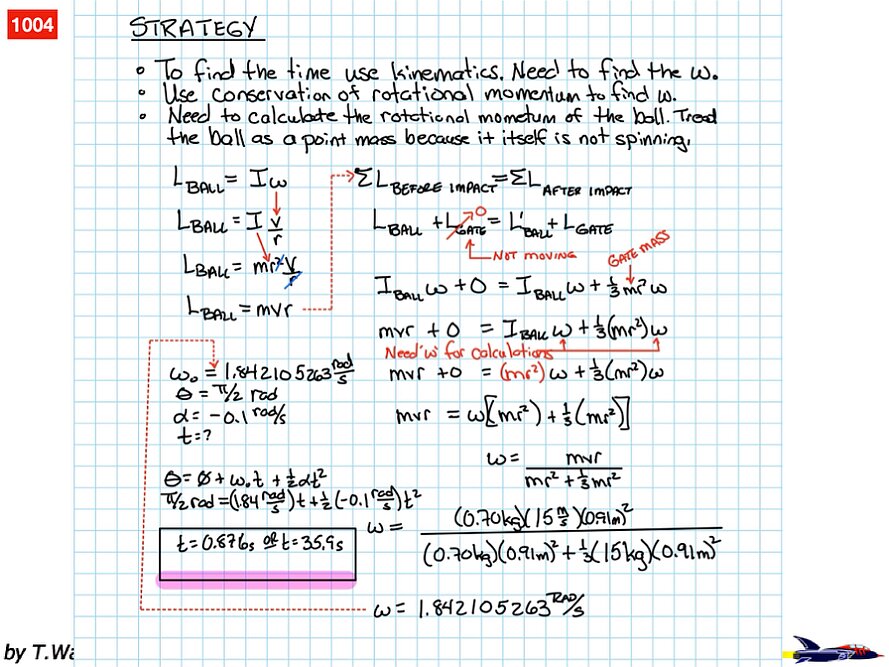 1004
STRATEGY
• To find the time use kinematics. Need to find the ω.
• Use conservation of rotational momentum to find ω.
• Need to calculate the rotational mometum of the ball. Tread
the ball as a point mass because it itself is not spinning.
L_BALL = Iω
L_BALL = I v/r
L_BALL = mr² v/r
L_BALL = mvr
ΣL_BEFORE IMPACT = ΣL_AFTER IMPACT
L_BALL + L_GATE = L'_BALL + L_GATE
0
NOT MOVING
GATE MASS
I_BALL ω + 0 = I_BALL ω + ⅓mr²ω
mvr + 0 = I_BALL ω + ⅓(mr²)ω
Need 'ω' for calculations
mvr + 0 = (mr²)ω + ⅓(mr²)ω
mvr = ω[(mr²) + ⅓(mr²)]
ω = mvr / (mr² + ⅓mr²)
ω = (0.70kg)(15 m/s)(0.91m)² / ((0.70kg)(0.91m)² + ⅓(15kg)(0.91m)²)
ω = 1.842105263 RAD/s
ω₀ = 1.842105263 rad/s
θ = π/2 rad
α = -0.1 rad/s
t = ?
θ = 0 + ω₀t + ½αt²
π/2 rad = (1.84 rad/s)t + ½(-0.1 rad/s)t²
t = 0.876s or t = 35.9s
by T.Wa